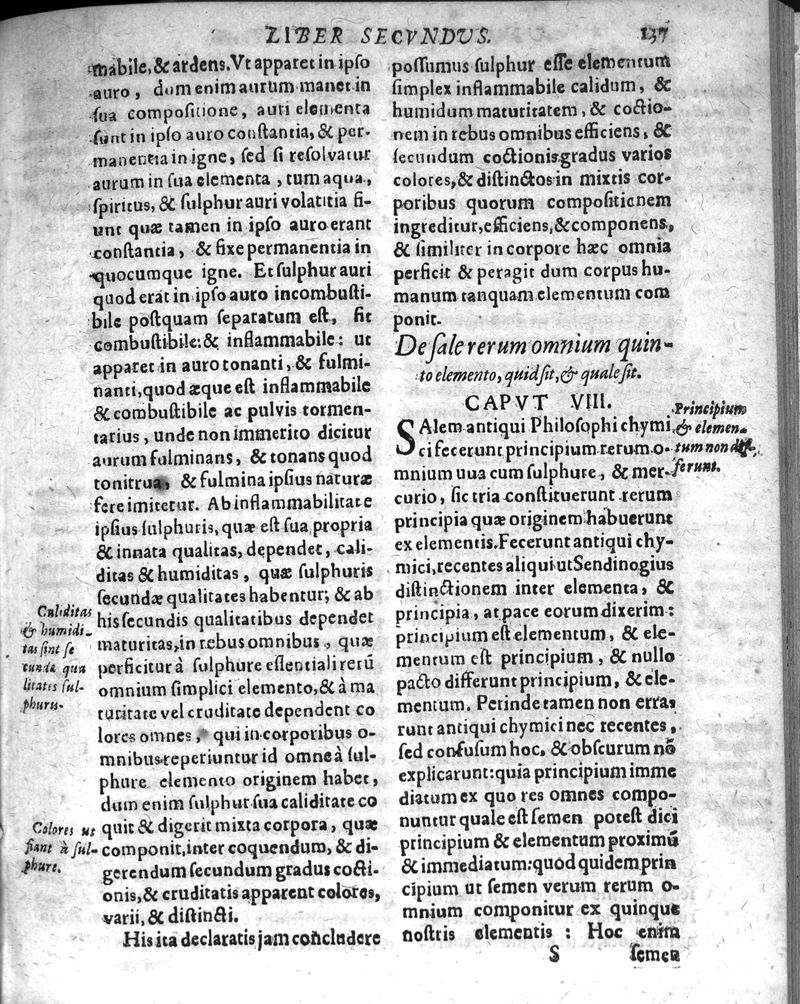 LIBER SECVNDUS. 137
mabile, & ardens. Vt apparet in ipso
auro, dum enim aurum manet in
sua compositione, auri elementa
sunt in ipso auro constantia, & per-
manentia in igne, sed si resolvatur
aurum in sua elementa, tum aqua,
spiritus, & sulphur auri volatitia fi-
unt quæ tamen in ipso auro erant
constantia, & fixe permanentia in
quocumque igne. Et sulphur auri
quod erat in ipso auro incombusti-
bile postquam separatum est, fit
combustibile: & inflammabile: ut
apparet in auro tonanti, & fulmi-
nanti, quod æque est inflammabile
& combustibile ac pulvis tormen-
tarius, unde non immerito dicitur
aurum fulminans, & tonans quod
tonitrua, & fulmina ipsius naturæ
fere imitetur. Ab inflammabilitate
ipsius sulphuris, quæ est sua propria
& innata qualitas, dependet, cali-
ditas & humiditas, quæ sulphuris
secundæ qualitates habentur; & ab
his secundis qualitatibus dependet
maturitas, in rebus omnibus, quæ
perficitur à sulphure essentiali rerū
omnium simplici elemento, & à ma
turitate vel cruditate dependent co
lores omnes, qui in corporibus o-
mnibus reperiuntur id omne à sul-
phure elemento originem habet,
dum enim sulphur sua caliditate co
quit & digerit mixta corpora, quæ
componit, inter coquendum, & di-
gerendum secundum gradus cocti-
onis, & cruditatis apparent colores,
varii, & distincti.
His ita declaratis jam concludere
Caliditas
& humidi-
tas sint se
cundæ qua
litates sul-
phuris.
Colores ut
fiant à sul-
phure.
possumus sulphur esse elementum
simplex inflammabile calidum, &
humidum maturitatem, & coctio-
nem in rebus omnibus efficiens, &
secundum coctionis gradus varios
colores, & distinctos in mixtis cor-
poribus quorum compositionem
ingreditur, efficiens, & componens,
& similiter in corpore hæc omnia
perficit & peragit dum corpus hu-
manum tanquam elementum com
ponit.
De sale rerum omnium quin-
to elemento, quid sit, & quale sit.
CAPVT VIII.
SAlem antiqui Philosophi chymi
ci fecerunt principium rerum o-
mnium uua cum sulphure, & mer-
curio, sic tria constituerunt rerum
principia quæ originem habuerunt
ex elementis. Fecerunt antiqui chy-
mici, recentes aliqui ut Sendinogius
distinctionem inter elementa, &
principia, at pace eorum dixerim:
principium est elementum, & ele-
mentum est principium, & nullo
pacto differunt principium, & ele-
mentum. Perinde tamen non erra,
runt antiqui chymici nec recentes,
sed confusum hoc, & obscurum nō
explicarunt: quia principium imme
diatum ex quo res omnes compo-
nuntur quale est semen potest dici
principium & elementum proximū
& immediatum: quod quidem prin
cipium ut semen verum rerum o-
mnium componitur ex quinque
nostris elementis : Hoc enim
S semen
Principium
& elemen-
tum non dif-
ferunt.